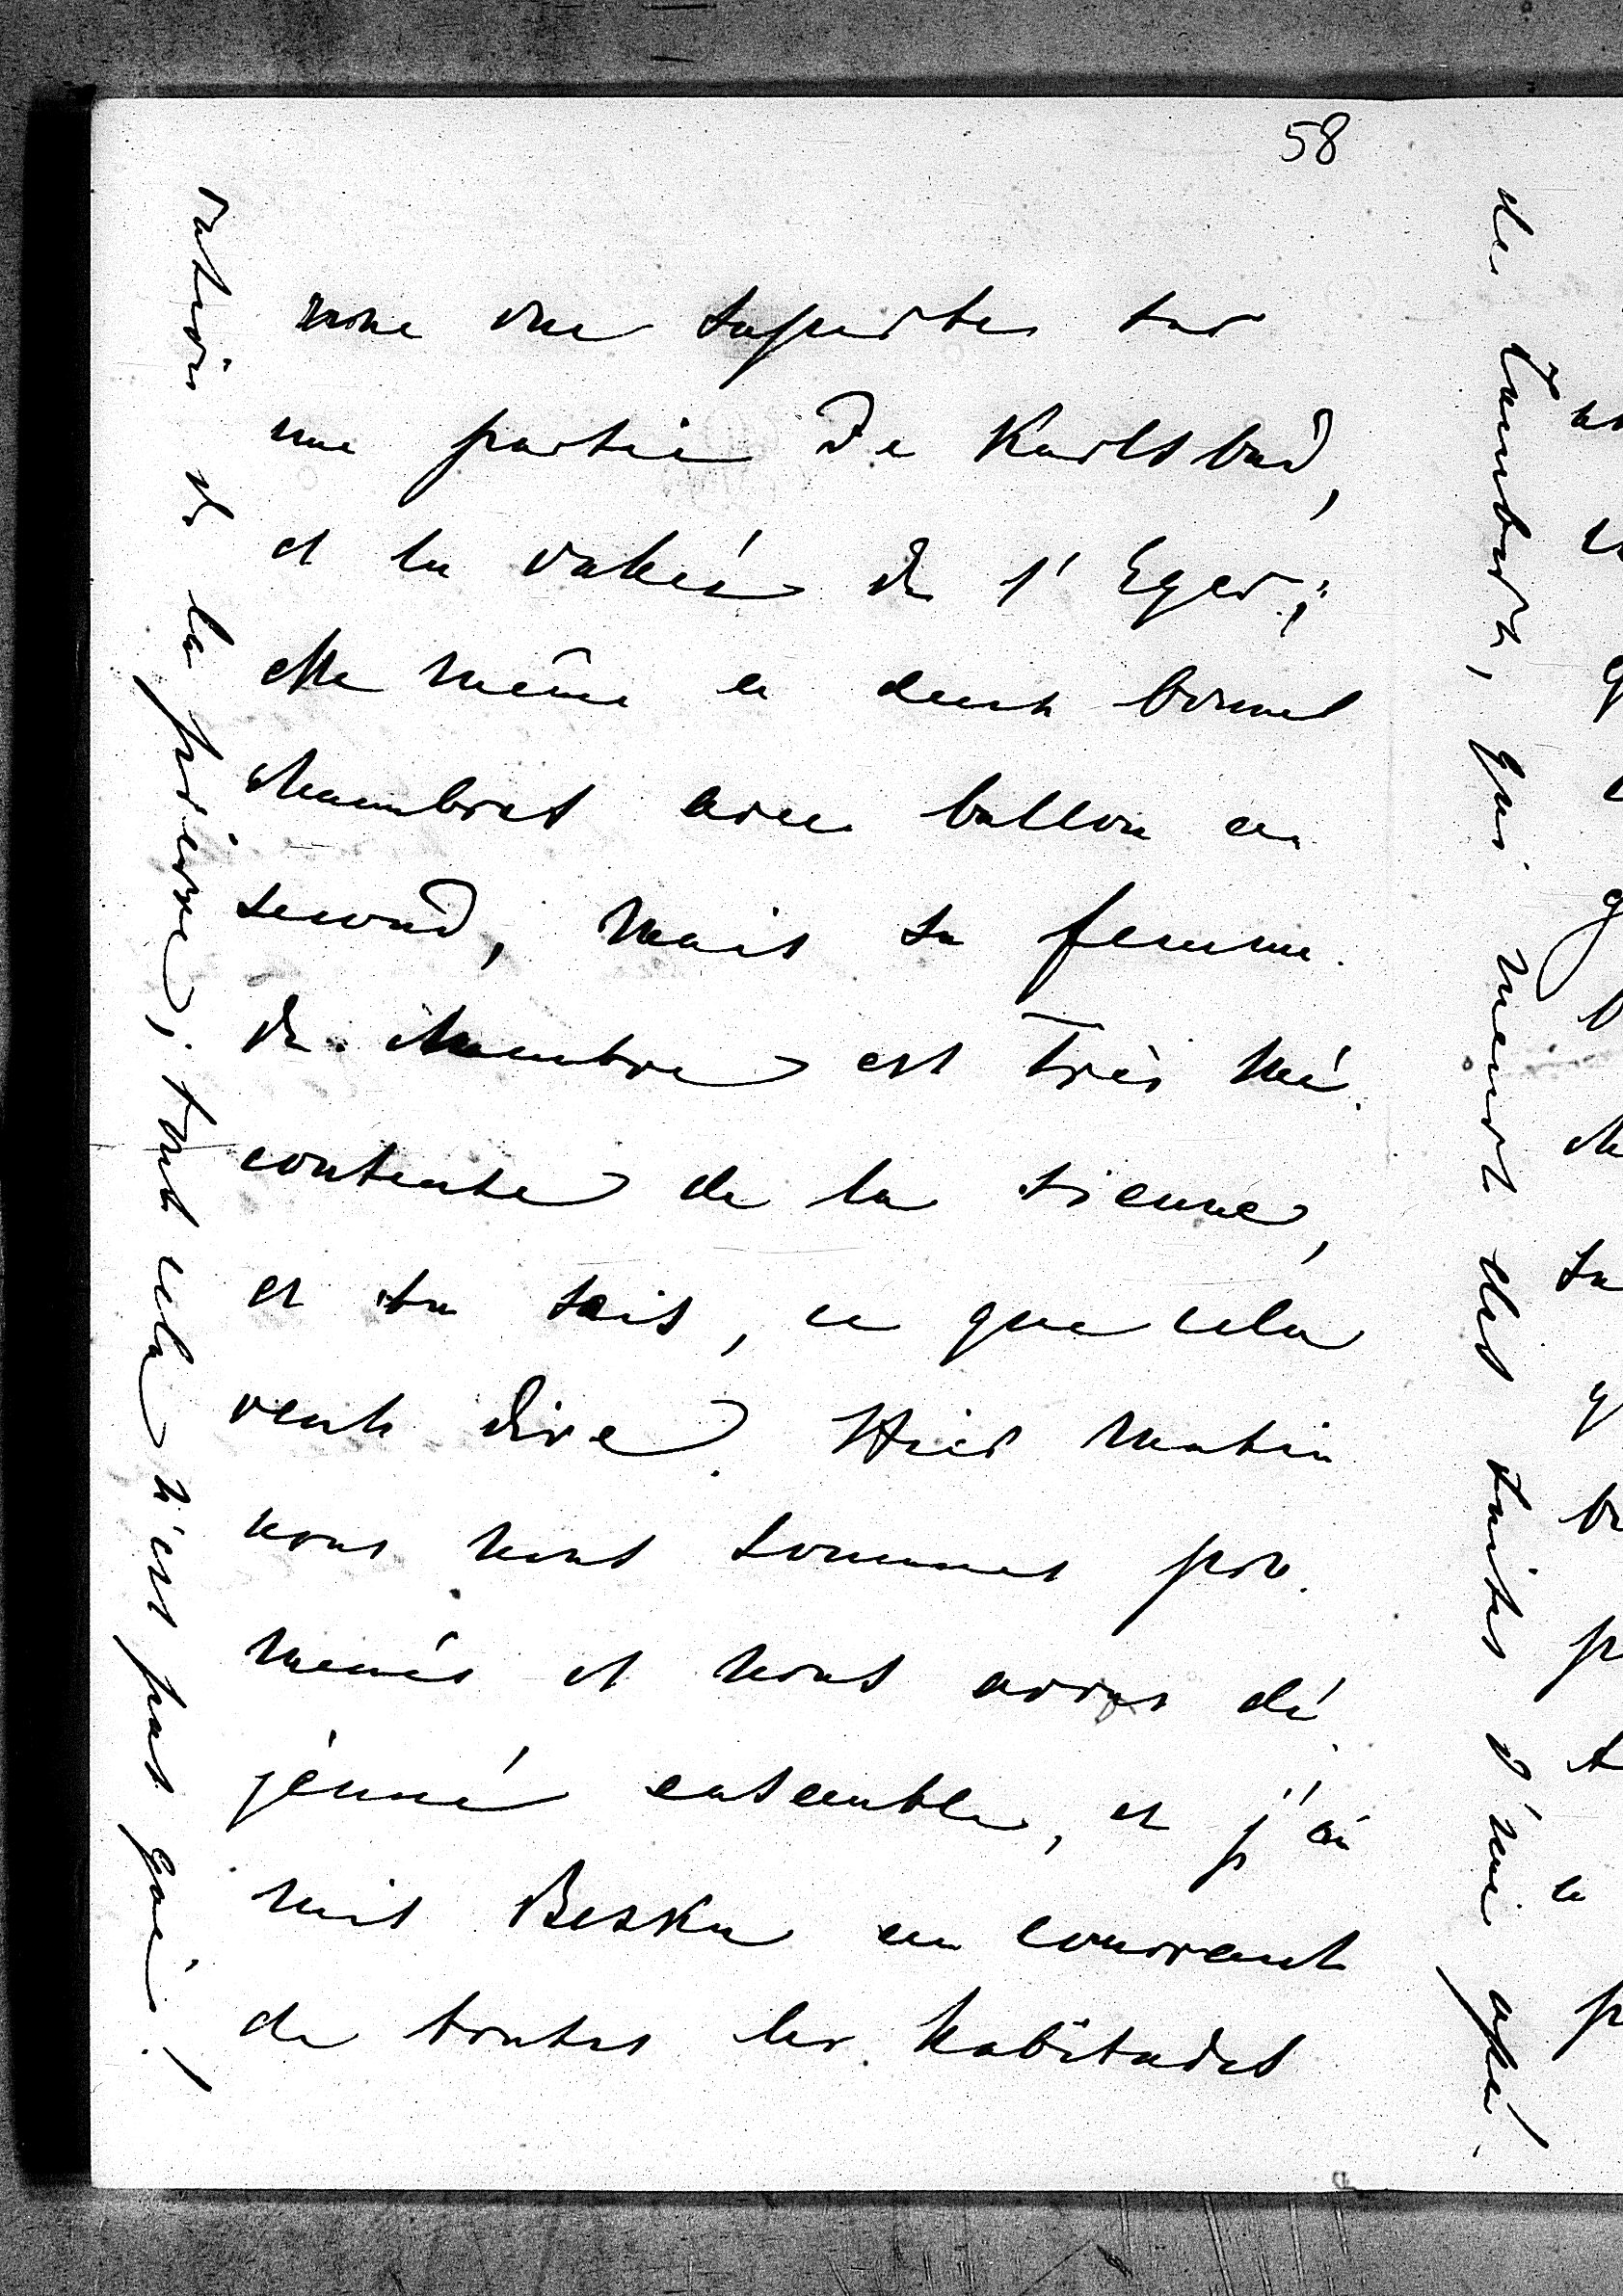 58
une vue superbe sur
une partie de Karlsbad,
et la vallée de l'Eger;
elle même a deux bonnes
chambres avec balcon au
second, mais sa femme
de chambre est très mé
contente de la sienne,
et tu sais, ce que cela
veut dire. Hier matin
nous nous sommes pro
menés et nous avons dé
jeuné ensemble, et j'ai
mis Beska au courant
de toutes les habitudes
ration de la princesse; tout cela n'est pas gai!
qui